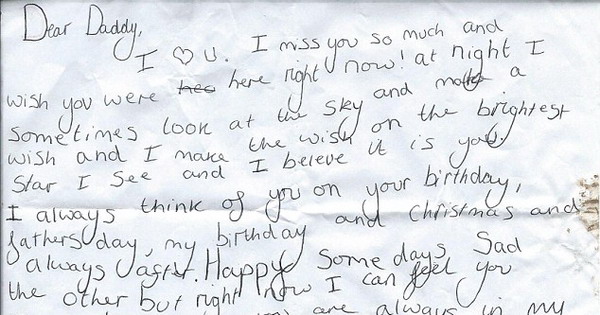 Dear Daddy,
I ♡ U. I miss you so much and
wish you were here right now! at night I
sometimes look at the sky and make a
wish and I make the wish on the brightest
Star I see and I beleve it is you.
I always think of you on your birthday,
fathers day, my birthday and Christmas and
always after. Happy Some days Sad
the other but right now I can feel you
are always in my